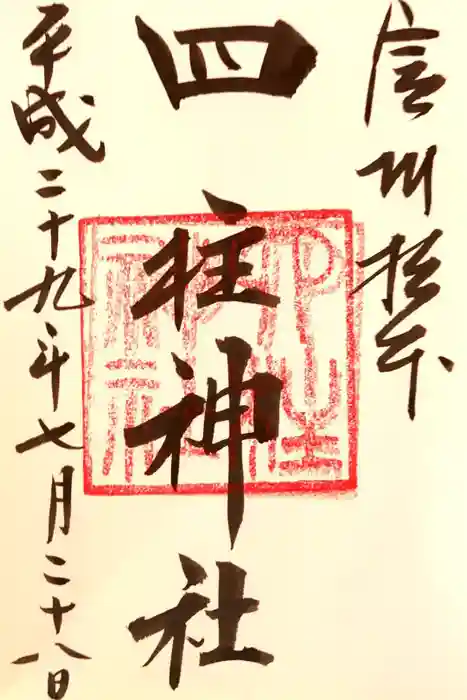 信州松本
四柱神社
平成二十九年七月二十八日
四柱神社